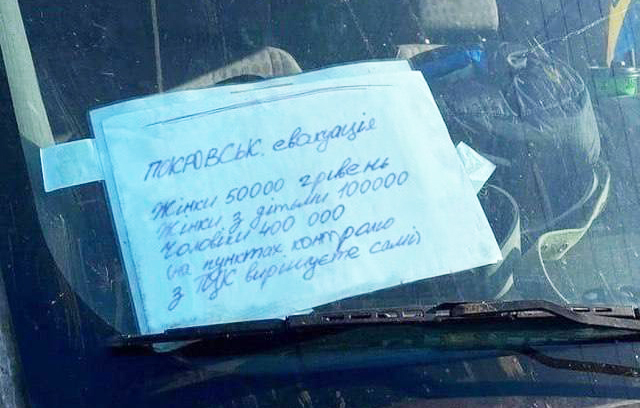 ПОКРОВСЬК. евакуація
Жінки 50000 гривень
Жінки з дітьми 100000
Чоловіки 400 000
(на пунктах контролю
з ТЦК вирішуєте самі)